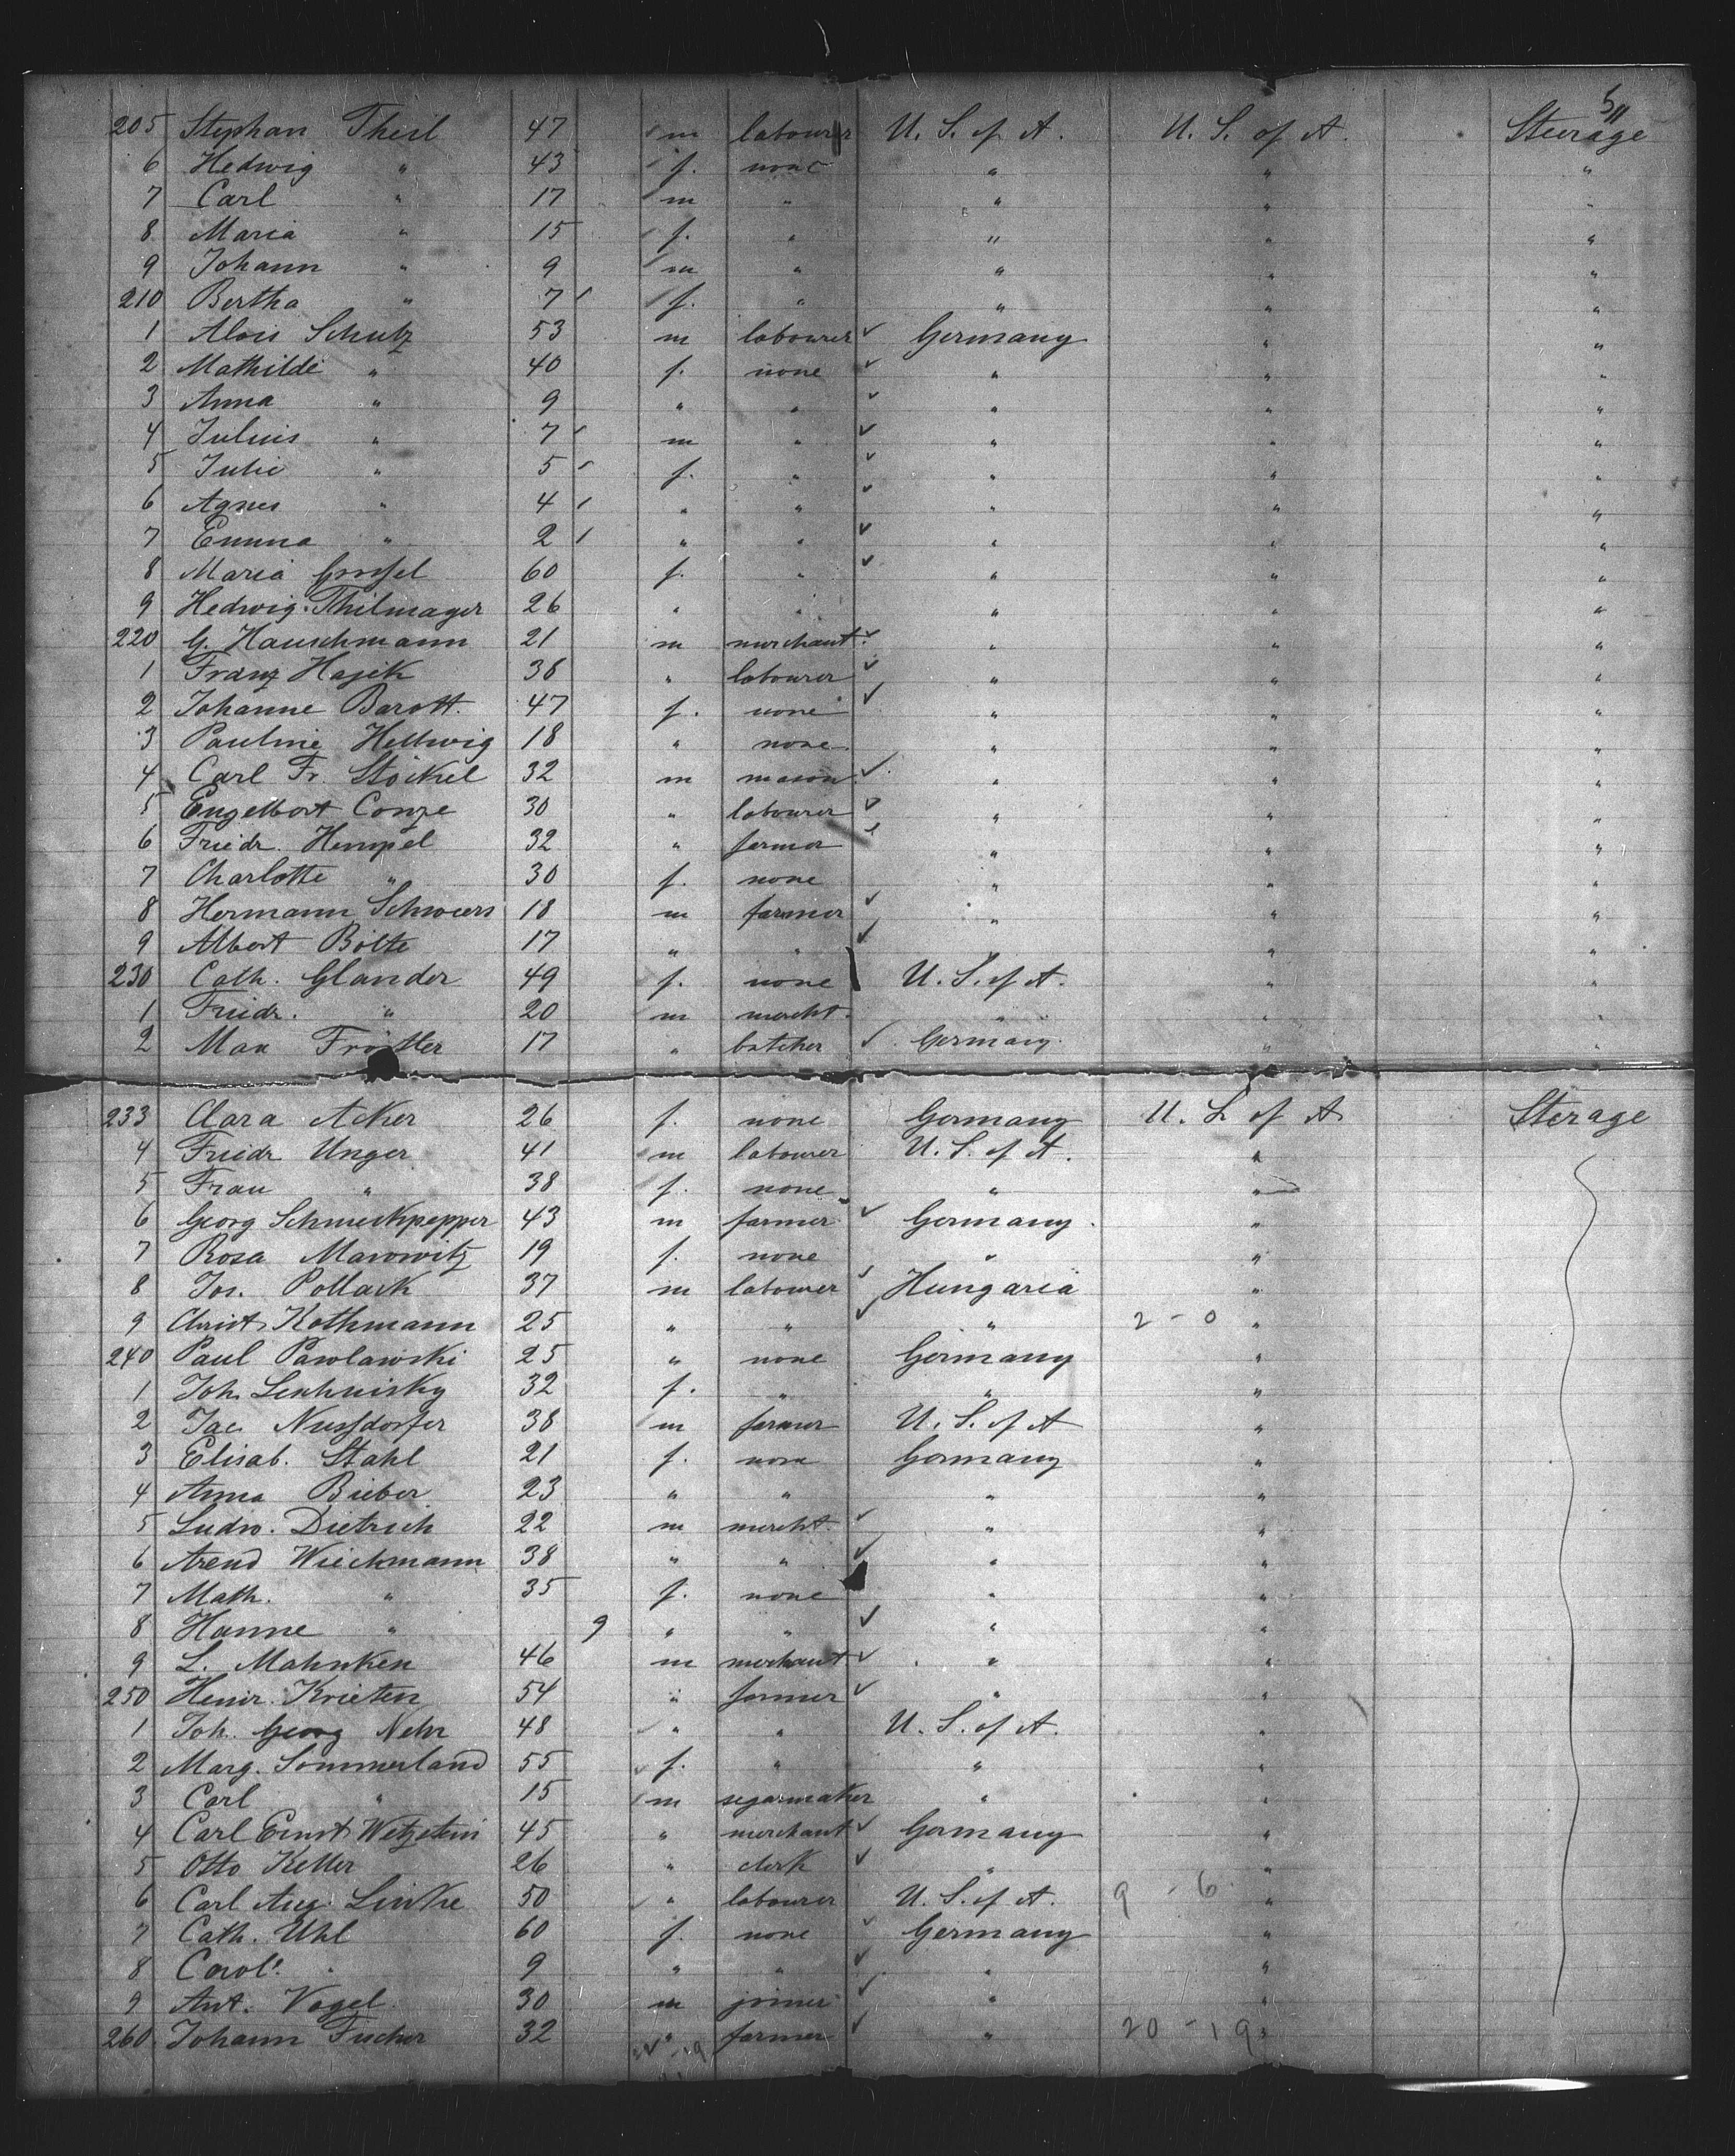 5"
205 Stephan Theil 47 m labourer U. S. of A. U. S. of A. Steerage
6 Hedwig " 43 f. none " " "
7 Carl " 17 m " " " "
8 Maria " 15 f. " " " "
9 Johann " 9 m " " " "
210 Bertha " 7 f. " " " "
1 Alois Schutz 53 m labourer Germany " "
2 Mathilde " 40 f. none " " "
3 Anna " 9 " " " " "
4 Julius " 7 m " " " "
5 Julie " 5 f. " " " "
6 Agnes " 4 " " " " "
7 Emma " 2 " " " " "
8 Maria 60 f. " " " "
9 Hedwig Thilmager 26 " " " " "
220 G. Hauschmann 21 m merchant " " "
1 Franz Hajek 36 " labourer " " "
2 Johanne Barott. 47 f. none " " "
3 Pauline Hellwig 18 " none " " "
4 Carl Fr. Stöckel 32 m mason " " "
5 Engelbert Conze 30 " labourer " " "
6 Friedr. Hempel 32 " farmer " " "
7 Charlotte " 30 f. none " " "
8 Hermann Schwiers 18 m farmer " " "
9 Albert Bölte 17 " " " " "
230 Cath. Glander 49 f. none U. S. of A. " "
1 Friedr. " 20 m mercht. " " "
2 Max 17 " butcher Germany " "
233 Clara Acker 26 f. none Germany U. S. of A Sterage
4 Friedr Unger 41 m labourer U. S. of A. "
5 Frau " 38 f. none " "
6 Georg Schmeckpepper 43 m farmer Germany "
7 Rosa Marowitz 19 f. none " "
8 Jos. Pollack 37 m labourer Hungaria "
9 Christ. Kothmann 25 " " " 2 - 0 "
240 Paul Pawlawski 25 " none Germany "
1 Joh. 32 f. " " "
2 Jac. Nussdorfer 38 m farmer U. S. of A "
3 Elisab. Stahl 21 f. none Germany "
4 Anna Bieber 23 " " " "
5 Ludw. Dietrich 22 m mercht. " "
6 Arend Wieckmann 38 " " " "
7 Math. " 35 f. none " "
8 Hanne " 9 " " " "
9 L. Mahnken 46 m merchant " "
250 Heinr. Krieten 54 " farmer " "
1 Joh. Georg Nehr 48 " " U. S. of A. "
2 Marg. Sommerland 55 f. " " "
3 Carl " 15 m segarmaker " "
4 Carl Ernst Wetzstein 45 " merchant Germany "
5 Otto Keller 26 " clerk " "
6 Carl Aug. Linke 50 " labourer U. S. of A. 9 - 6 "
7 Cath. Uhl 60 f. none Germany "
8 Carol. " 9 " " " "
9 Ant. Vogel 30 m joiner " "
260 Johann Fischer 32 " farmer " 20 - 19 "